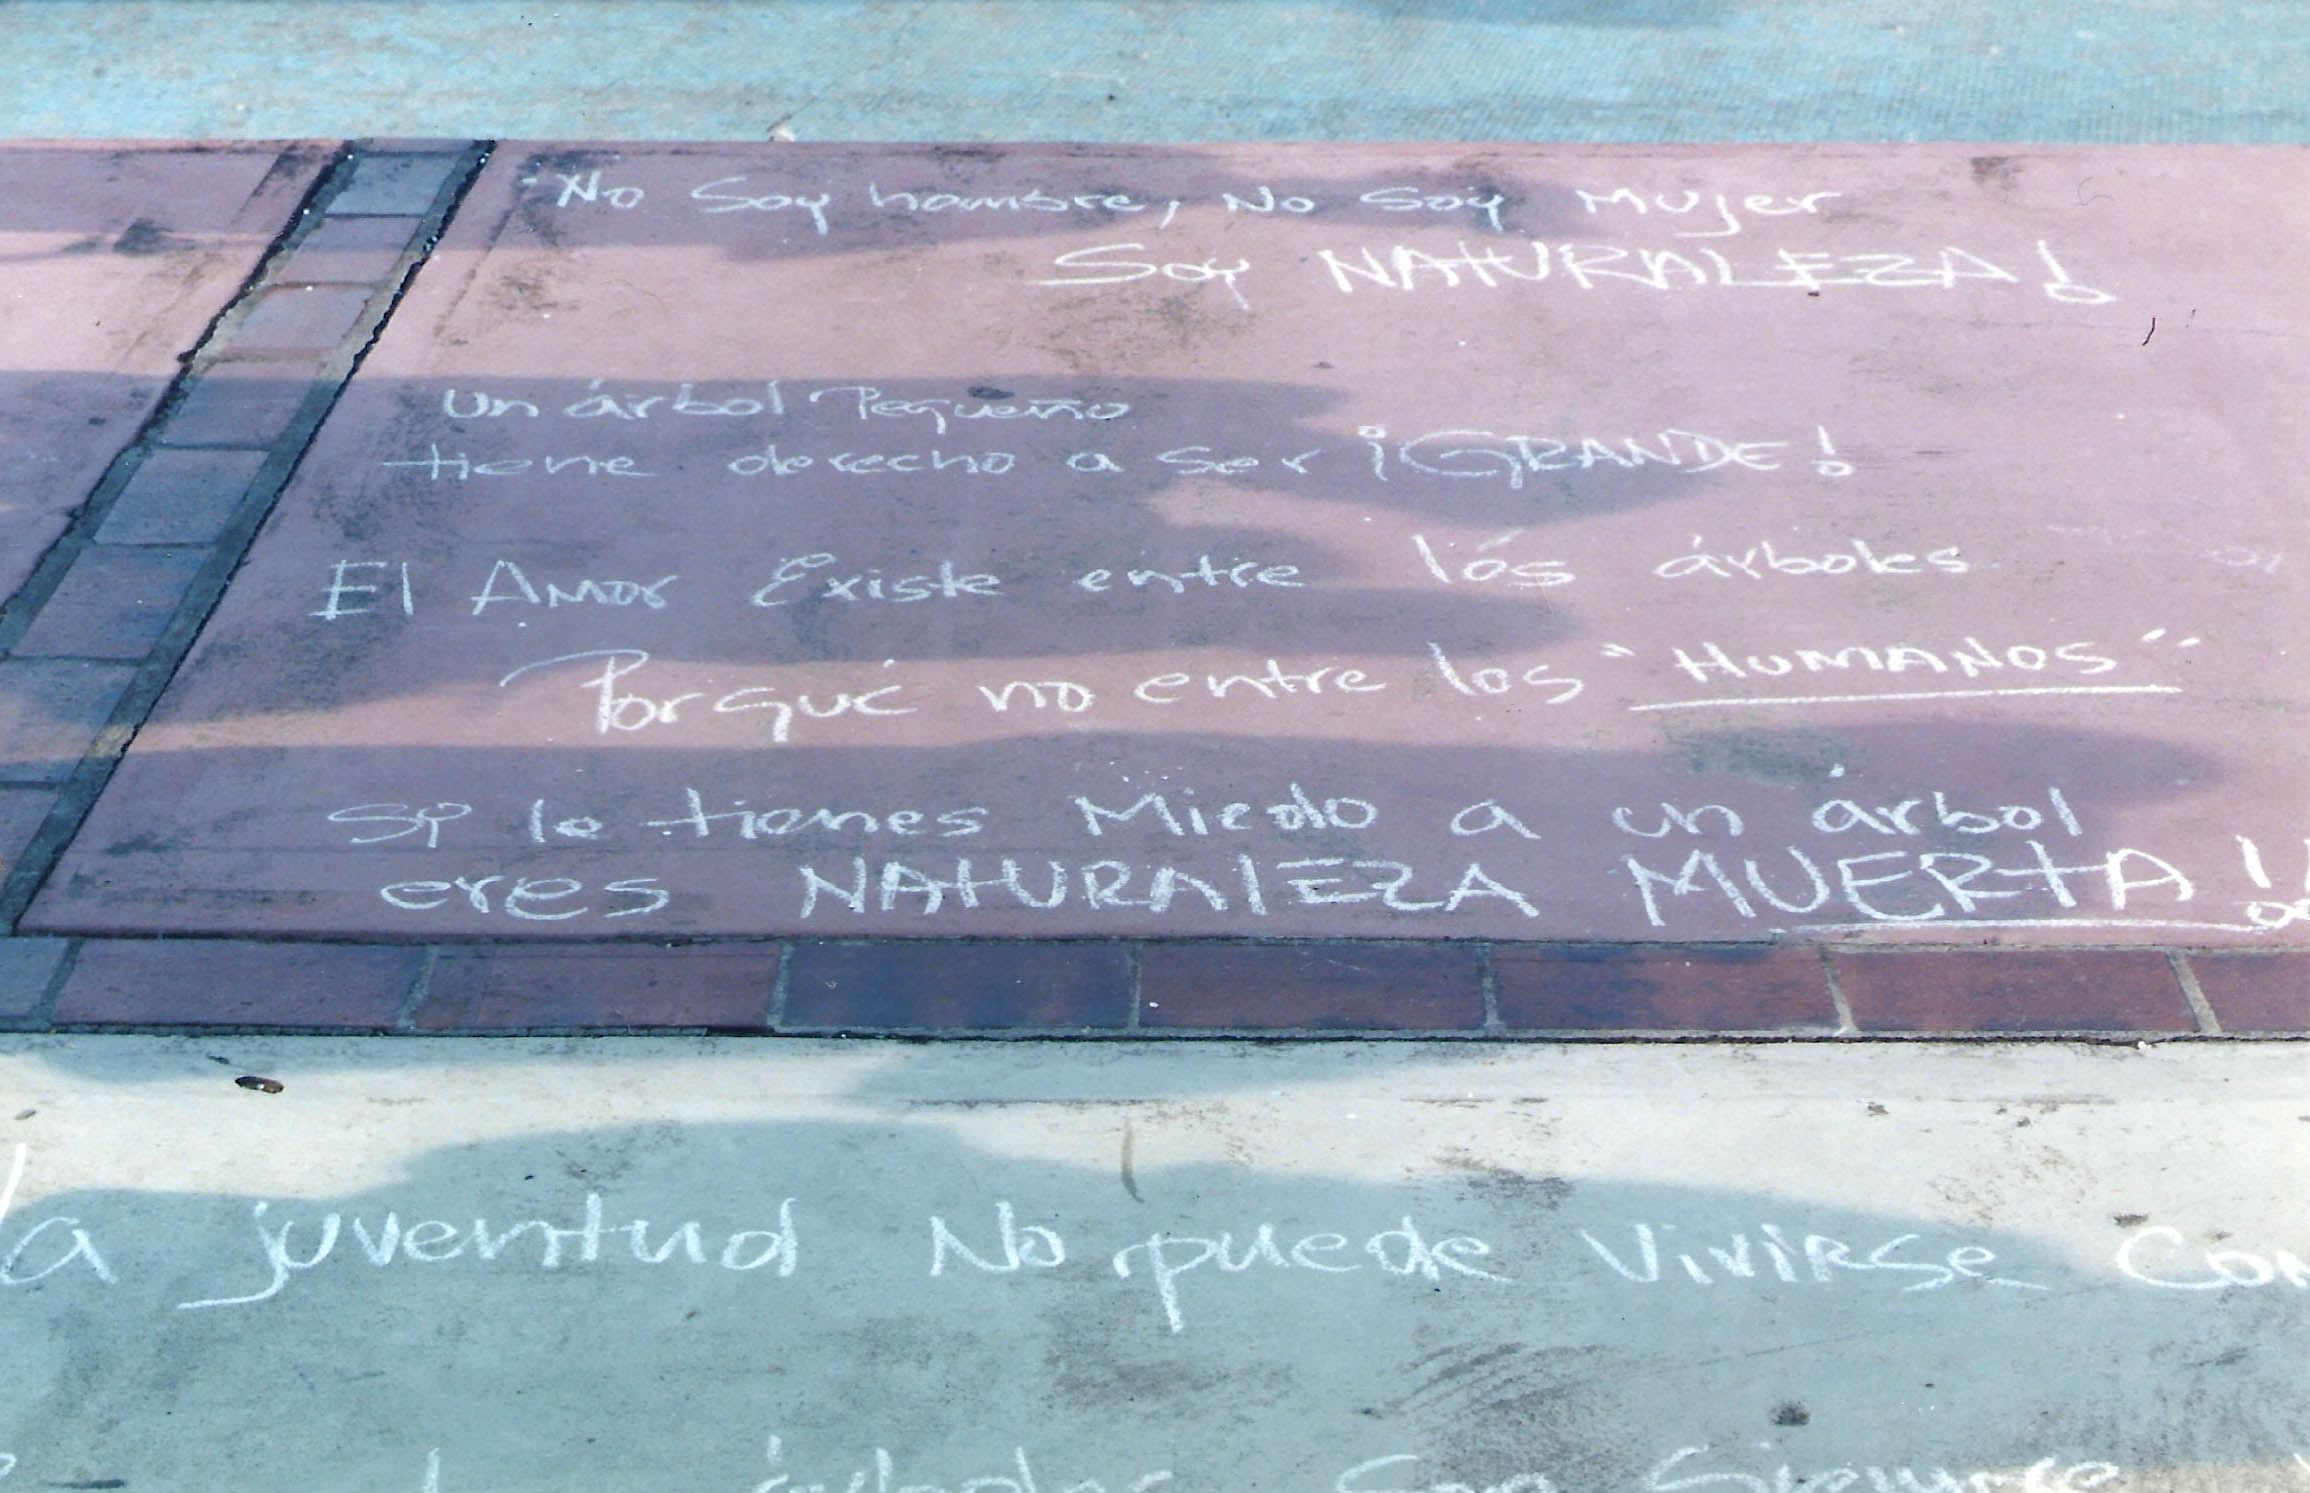 No Soy hombre, No Soy Mujer
Soy NATURALEZA!
un árbol Pequeño
tiene derecho a ser ¡GRANDE!
El AMOR Existe entre lós árboles
Porqué no entre los "HUMANOS"
Si le tienes Miedo a un árbol
eres NATURAlEZA MUERTA!!
la juventud No puede VIVIRSe Con
árboles Son Siempre